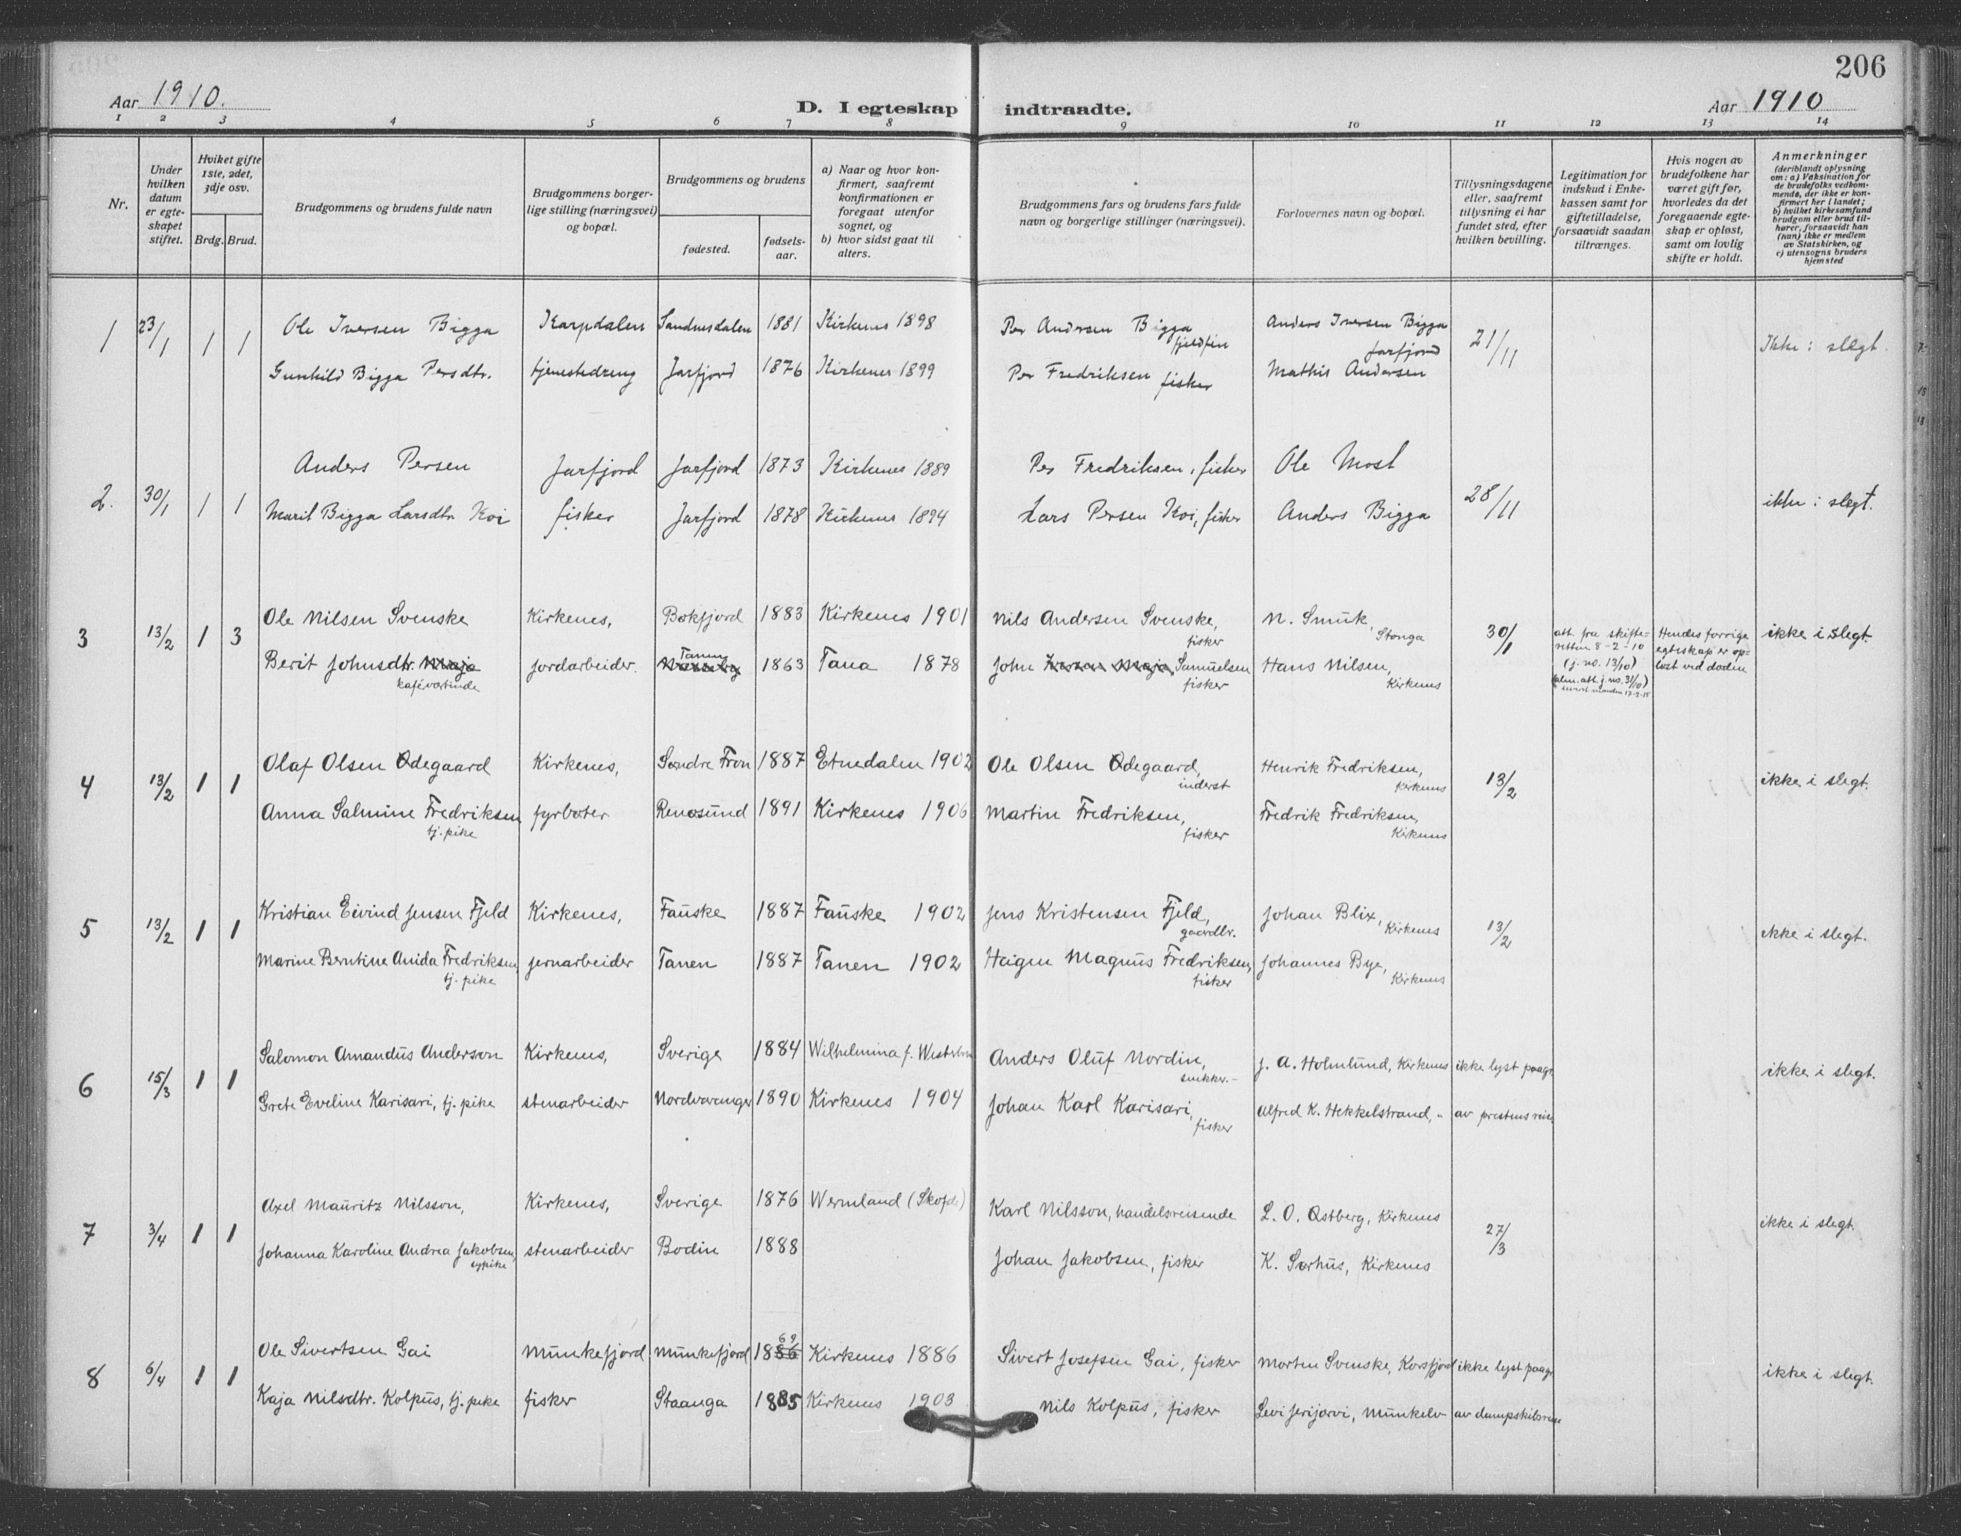 206
Aar 1910.
D. I egteskap indtraadte.
Aar 1910
1 2 3 4 5 6 7 8 9 10 11 12 13 14
Nr.
Under hvilken datum er egteskapet stiftet.
Hviket gifte 1ste, 2det, 3dje osv.
Brdg. Brud.
Brudgommens og brudens fulde navn
Brudgommens borgerlige stilling (næringsvei) og bopæl.
Brudgommens og brudens
fødested.
fødselsaar.
a) Naar og hvor konfirmert, saafremt konfirmationen er foregaat utenfor sognet, og
b) hvor sidst gaat til alters.
Brudgommens fars og brudens fars fulde navn og borgerlige stillinger (næringsvei).
Forlovernes navn og bopæl.
Tillysningsdagene eller, saafremt tillysning ei har fundet sted, efter hvilken bevilling.
Legitimation for indskud i Enkekassen samt for giftetilladelse, forsaavidt saadan tiltrænges.
Hvis nogen av brudefolkene har været gift før, hvorledes da det foregaaende egteskap er opløst, samt om lovlig skifte er holdt.
Anmerkninger (deriblandt oplysning om: a) Vaksination for de brudefolks vedkommende, der ikke er konfirmert her i landet; b) hvilket kirkesamfund brudgom eller brud tilhører, forsaavidt han (hun) ikke er medlem av Statskirken, og c) utensogns bruders hjemsted
1 23/1 1 1 Ole Iversen Bigga Karpdalen Sandnesdalen 1881 Kirkenes 1898 Per Andersen Bigga fjeldfin Anders Iversen Bigga Jarfjord 21/11 Ikke i slegt.
Gunhild Bigga Persdtr. tjenestedreng Jarfjord 1876 Kirkenes 1899 Per Fredriksen fisker Mathis Andersen
2. 30/1 1 1 Anders Persen Jarfjord Jarfjord 1873 Kirkenes 1889 Per Fredriksen, fisker Ole Most 28/11 ikke i slegt.
Marit Bigga Larsdtr. Koi fisker Jarfjord 1878 Kirkenes 1894 Lars Persen Koi, fisker Anders Bigga
3 13/2 1 3 Ole Nilsen Svenske Kirkenes, Bøkfjord 1883 Kirkenes 1901 Nils Andersen Svenske, fisker N. Smuk, Stonga 30/1 att. fra skifteretten 8-2-10 (j. no. 13/10) Hendes forrige egteskap er opløst ved døden ikke i slegt.
Berit Johnsdtr. Maja kafévertinde jordarbeider. Tanen 1863 Tana 1878 John Samuelsen fisker Hans Nilsen, Kirkenes
4 13/2 1 1 Olaf Olsen Ødegaard Kirkenes, Søndre Fron 1887 Etnedalen 1902 Ole Olsen Ødegaard, inderst Henrik Fredriksen, Kirkenes 13/2 ikke i slegt.
Anna Salmine Fredriksen tj. pike fyrbøter Renøsund 1891 Kirkenes 1906 Martin Fredriksen, fisker Fredrik Fredriksen, Kirkenes
5 13/2 1 1 Kristian Eivind Jensen Fjeld Kirkenes, Fauske 1887 Fauske 1902 Jens Kristensen Fjeld, gaardbr. Johan Blix, Kirkenes 13/2 ikke i slegt.
Marine Berntine Anida Fredriksen tj. pike jernarbeider Tanen 1887 Tanen 1902 Heigen Magnus Fredriksen, fisker Johannes Bye, Kirkenes
6 15/3 1 1 Salomon Amandus Anderson Kirkenes, Sverige 1884 Wilhelmina f. Anders Oluf Nordin, snikker.- J. A. Holmlund, Kirkenes ikke lyst paagr ikke i slegt.
Grete Eveline Karisari, tj. pike stenarbeider Nordvaranger 1890 Kirkenes 1904 Johan Karl Karisari, fisker Alfred K. Hekkelstrand, - av prestens reise
7 3/4 1 1 Axel Mauritz Nilsson, Kirkenes, Sverige 1876 Wermland (Skofde) Karl Nilsson, handelsreisende L. O. Østberg, Kirkenes 27/3 ikke i slegt.
Johanna Karoline Andrea Jakobsen, sypike stenarbeider Bodin 1888 Johan Jakobsen, fisker K. Sørhus, Kirkenes
8 6/4 1 1 Ole Sivertsen Gai Munkefjord Munkefjord 1869 Kirkenes 1886 Sivert Josefsen Gai, fisker Morten Svenske, Korsfjord ikke lyst paagr ikke i slegt.
Kaja Nilsdtr. Kolpus, tj. pike fisker Staanga 1885 Kirkenes 1903 Nils Kolpus, fisker Levi Jerijarvi, Munkelv av dampskibsreise